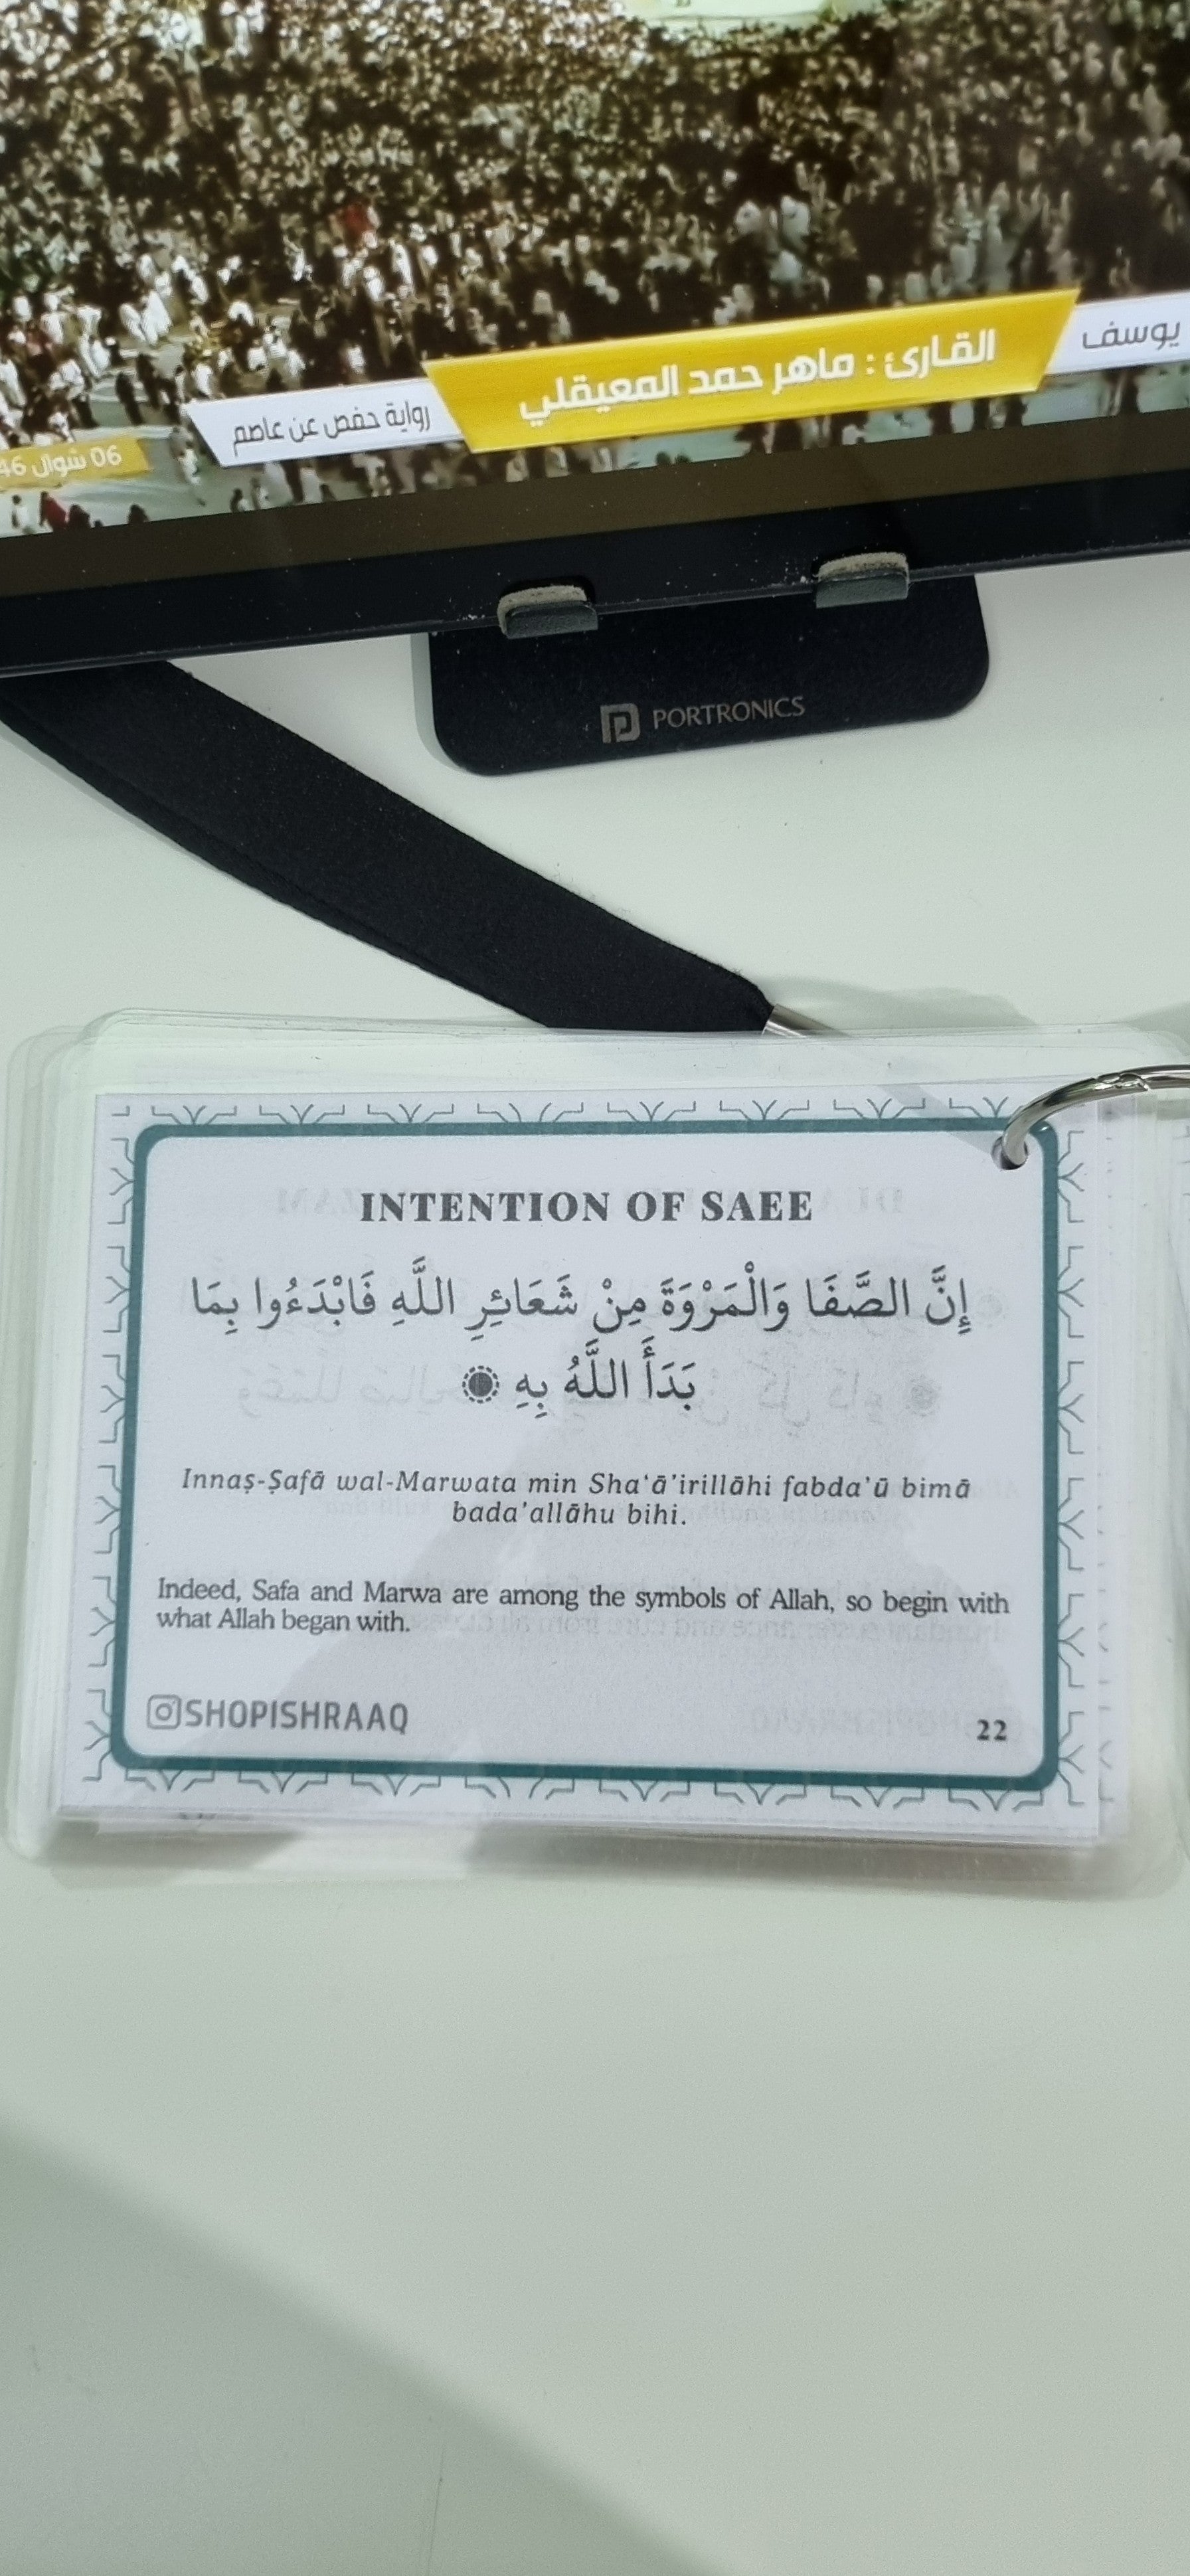 يوسف
القارئ : ماهر حمد المعيقلي
رواية حفص عن عاصم
06 شوال
PORTRONICS
INTENTION OF SAEE
إِنَّ الصَّفَا وَالْمَرْوَةَ مِنْ شَعَائِرِ اللَّهِ فَابْدَءُوا بِمَا
بَدَأَ اللَّهُ بِهِ
Innaṣ-Ṣafā wal-Marwata min Sha‘ā’irillāhi fabda’ū bimā
bada’allāhu bihi.
Indeed, Safa and Marwa are among the symbols of Allah, so begin with
what Allah began with.
SHOPISHRAAQ
22